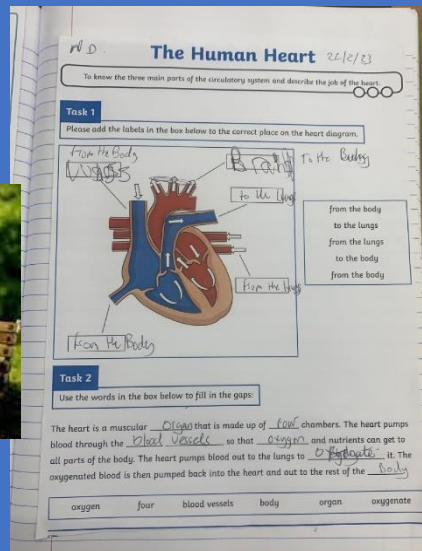 WD.
The Human Heart 22/2/23
To know the three main parts of the circulatory system and describe the job of the heart.
Task 1
Please add the labels in the box below to the correct place on the heart diagram.
from the Body
To the Body
to the lungs
from the lungs
from the Body
from the body
to the lungs
from the lungs
to the body
from the body
Task 2
Use the words in the box below to fill in the gaps:
The heart is a muscular organ that is made up of four chambers. The heart pumps
blood through the blood vessels so that oxygen and nutrients can get to
all parts of the body. The heart pumps blood out to the lungs to it. The
oxygenated blood is then pumped back into the heart and out to the rest of the Body
oxygen four blood vessels body organ oxygenate